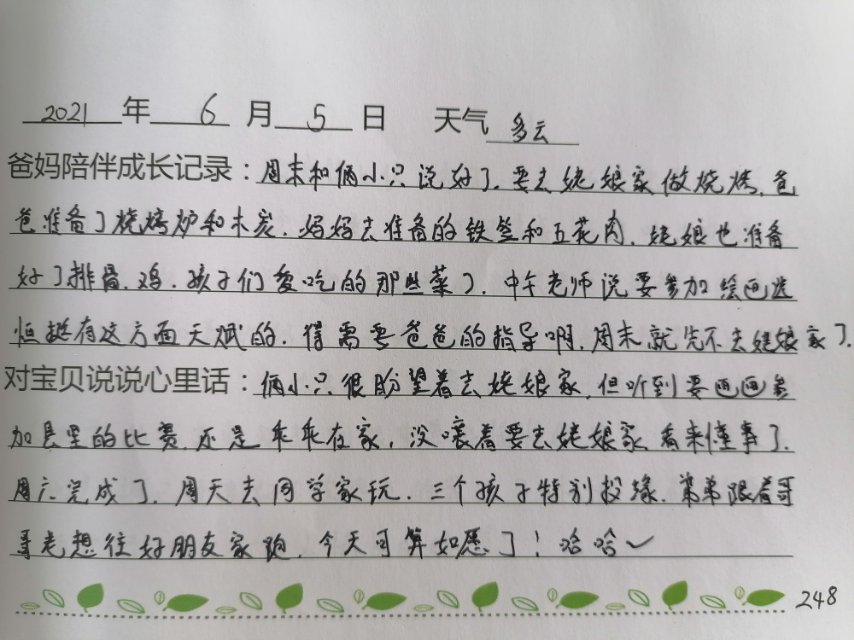 2021年6月5日 天气多云
爸妈陪伴成长记录：周末和俩小只说好了.要去姥娘家做烧烤.爸
爸准备了烧烤炉和木炭.妈妈去准备的铁签和五花肉.姥娘也准备
好了排骨.鸡.孩子们爱吃的那些菜了.中午老师说要参加绘画选
恒挺有这方面天赋的.得需要爸爸的指导啊.周末就先不去姥娘家了.
对宝贝说说心里话：俩小只很盼望着去姥娘家.但听到要画画参
加县里的比赛.还是乖乖在家，没嚷着要去姥娘家.看来懂事了.
周六完成了.周天去同学家玩.三个孩子特别投缘.弟弟跟着哥
哥老想往好朋友家跑.今天可算如愿了！哈哈～
248